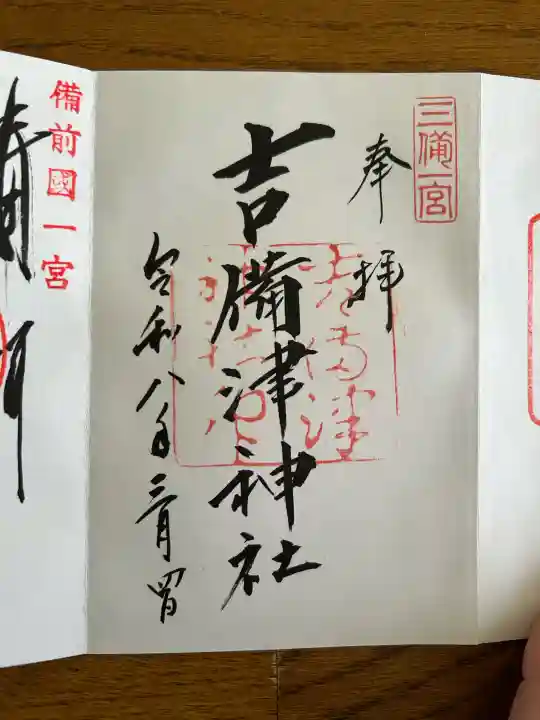 三備一宮
奉拝
吉備津神社
令和八年三月四日
備前國一宮